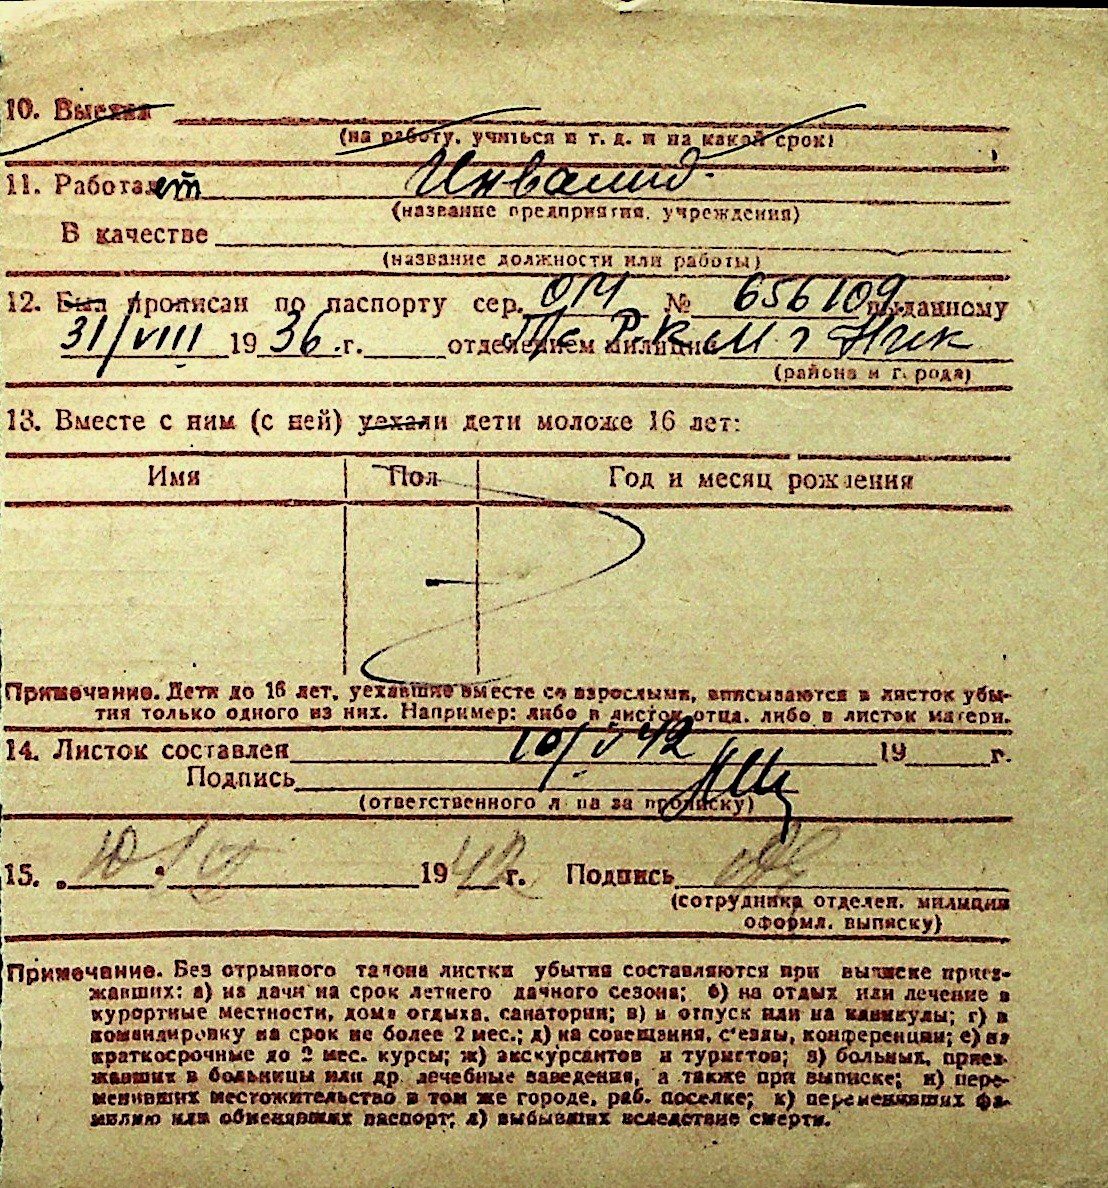 10. Выехал
(на работу, учиться и т. д. и на какой срок)
11. Работает Инвалид.
(название предприятия, учреждения)
В качестве
(название должности или работы)
12. Был прописан по паспорту сер. ОМ № 656109 выданному
31/VIII 1936 г. отделением милиции Р.К.М г
(района и города)
13. Вместе с ним (с ней) уехали дети моложе 16 лет:
Имя Пол Год и месяц рождения
Примечание. Дети до 16 лет, уехавшие вместе со взрослыми, вписываются в листок убы-
тия только одного из них. Например: либо в листок отца, либо в листок матери.
14. Листок составлен 10/V 42 19 г.
Подпись
(ответственного лица за прописку)
15. „10 V 1942 г. Подпись
(сотрудника отделен. милиции
оформл. выписку)
Примечание. Без отрывного талона листки убытия составляются при выписке приез-
жавших: а) на дачи на срок летнего дачного сезона; б) на отдых или лечение в
курортные местности, дома отдыха, санатории; в) в отпуск или на каникулы; г) в
командировку на срок не более 2 мес.; д) на совещания, с'езды, конференции; е) на
краткосрочные до 2 мес. курсы; ж) экскурсантов и туристов; з) больных, приез-
жавших в больницы или др. лечебные заведения, а также при выписке; и) пере-
менивших местожительство в том же городе, раб. поселке; к) переменивших фа-
милию или обменявших паспорт; л) выбывших вследствие смерти.